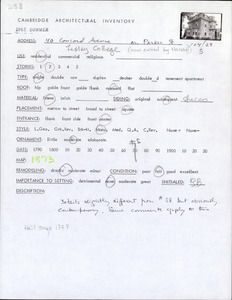 258
CAMBRIDGE ARCHITECTURAL INVENTORY
1965 SUMMER
ADDRESS: 40 Concord Avenue on Parker St
Lesley College
USE: residential commercial religious
STORIES: 1 2 3 4 5
TYPE: single double row duplex decker tenement apartment
ROOF: hip gable front gable flat mansard
MATERIAL: brick SIDING: original
PLACEMENT: narrow to street broad to street square
ENTRANCE: blank front side front
ORNAMENT: little moderate elaborate
DATE: 1790 1800 10 20 30 40 50 60 70 80 90 1900 10 20 30
MAP: 1873
REMODELING: drastic moderate minor CONDITION: poor fair good excellent
IMPORTANCE TO SETTING: detrimental minor moderate great INITIALED:
DESCRIPTION:
Details slightly different from # 38 but obviously
contemporary. Same comments apply to this